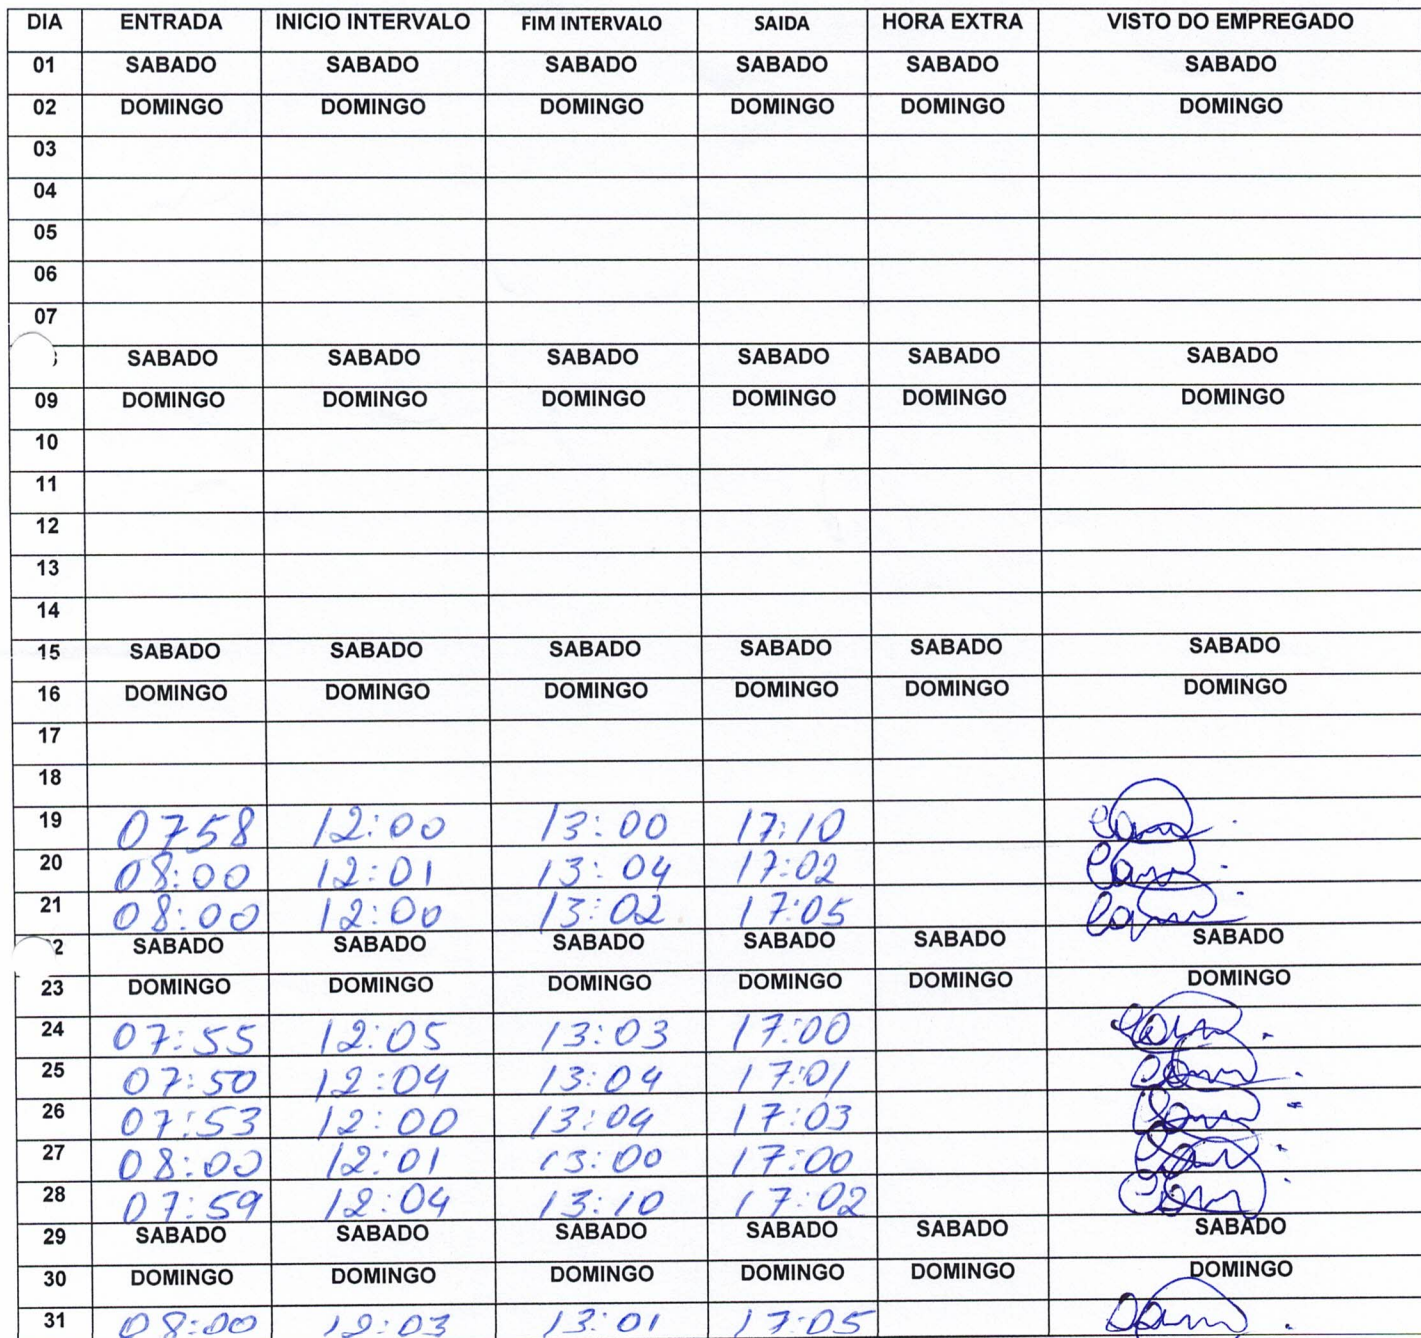 DIA ENTRADA INICIO INTERVALO FIM INTERVALO SAIDA HORA EXTRA VISTO DO EMPREGADO
01 SABADO SABADO SABADO SABADO SABADO SABADO
02 DOMINGO DOMINGO DOMINGO DOMINGO DOMINGO DOMINGO
03
04
05
06
07
SABADO SABADO SABADO SABADO SABADO SABADO
09 DOMINGO DOMINGO DOMINGO DOMINGO DOMINGO DOMINGO
10
11
12
13
14
15 SABADO SABADO SABADO SABADO SABADO SABADO
16 DOMINGO DOMINGO DOMINGO DOMINGO DOMINGO DOMINGO
17
18
19 0758 12:00 13:00 17:10
20 08:00 12:01 13:04 17:02
21 08:00 12:00 13:02 17:05
2 SABADO SABADO SABADO SABADO SABADO SABADO
23 DOMINGO DOMINGO DOMINGO DOMINGO DOMINGO DOMINGO
24 07:55 12:05 13:03 17:00
25 07:50 12:04 13:04 17:01
26 07:53 12:00 13:04 17:03
27 08:00 12:01 13:00 17:00
28 07:59 12:04 13:10 17:02
29 SABADO SABADO SABADO SABADO SABADO SABADO
30 DOMINGO DOMINGO DOMINGO DOMINGO DOMINGO DOMINGO
31 08:00 12:03 13:01 17:05